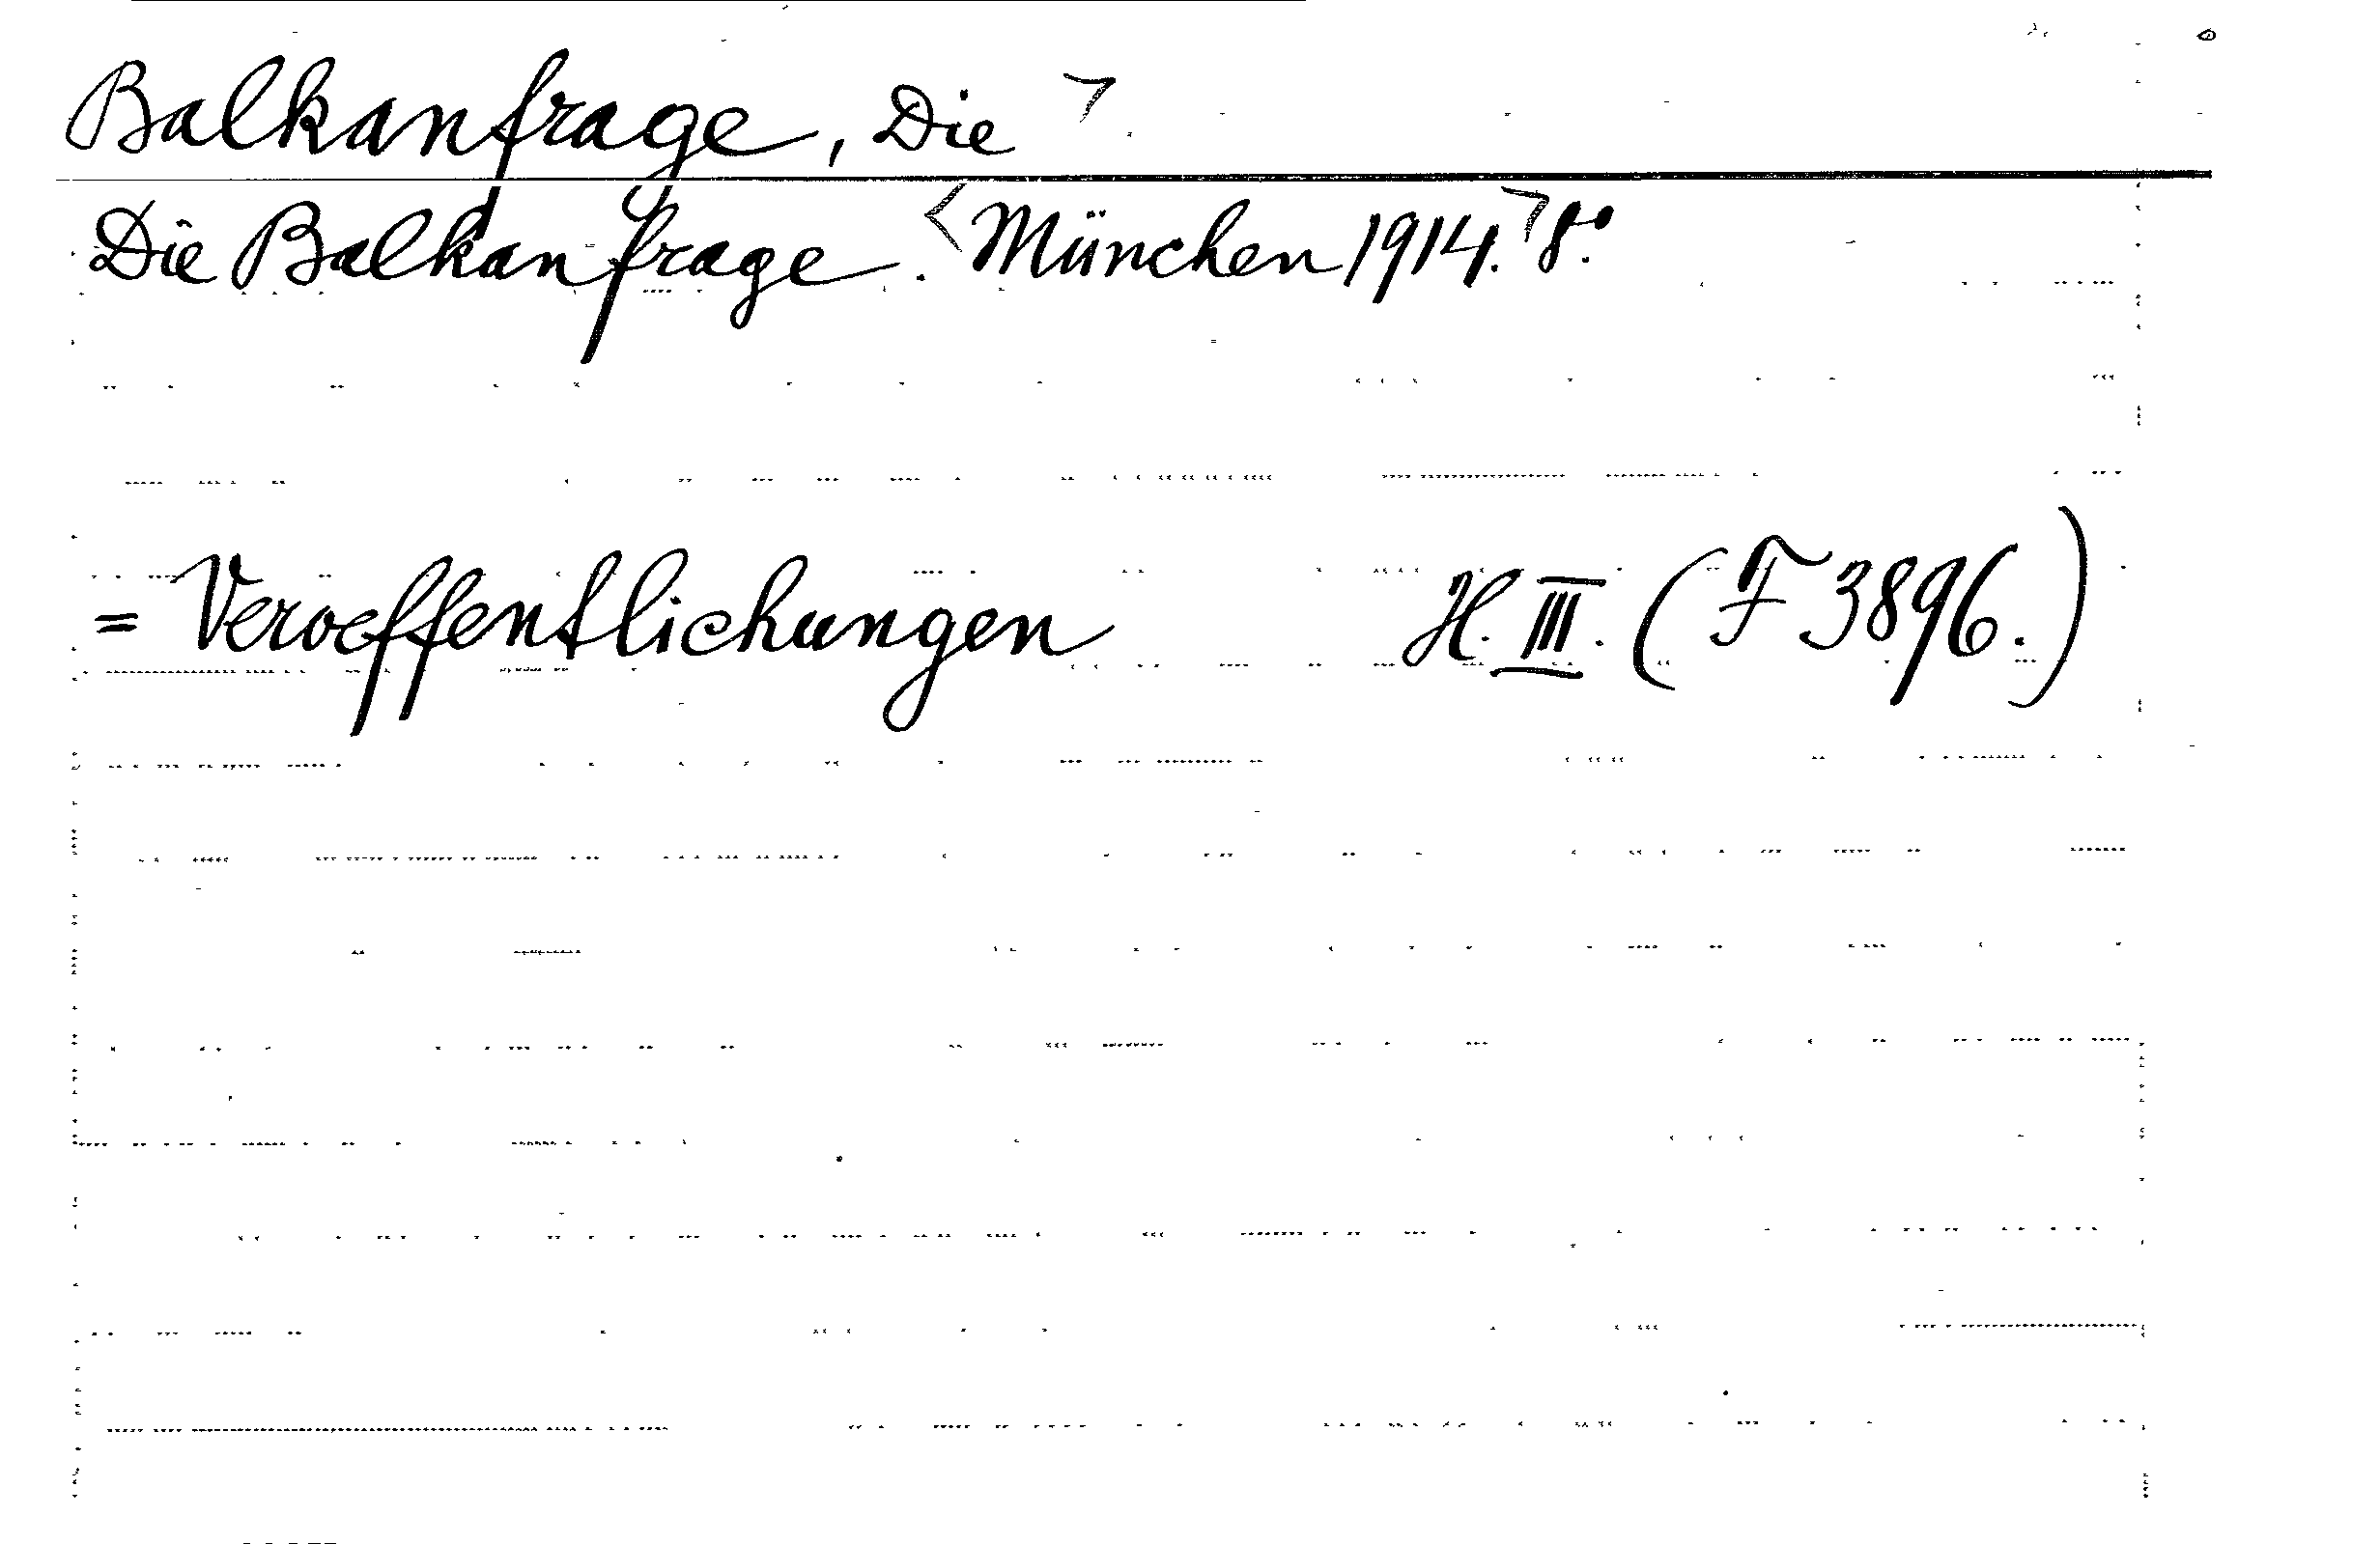 Balkanfrage, Die
Die Balkanfrage. <München 1914.> 8°.
= Veroeffentlichungen H. III. (F 3896.)